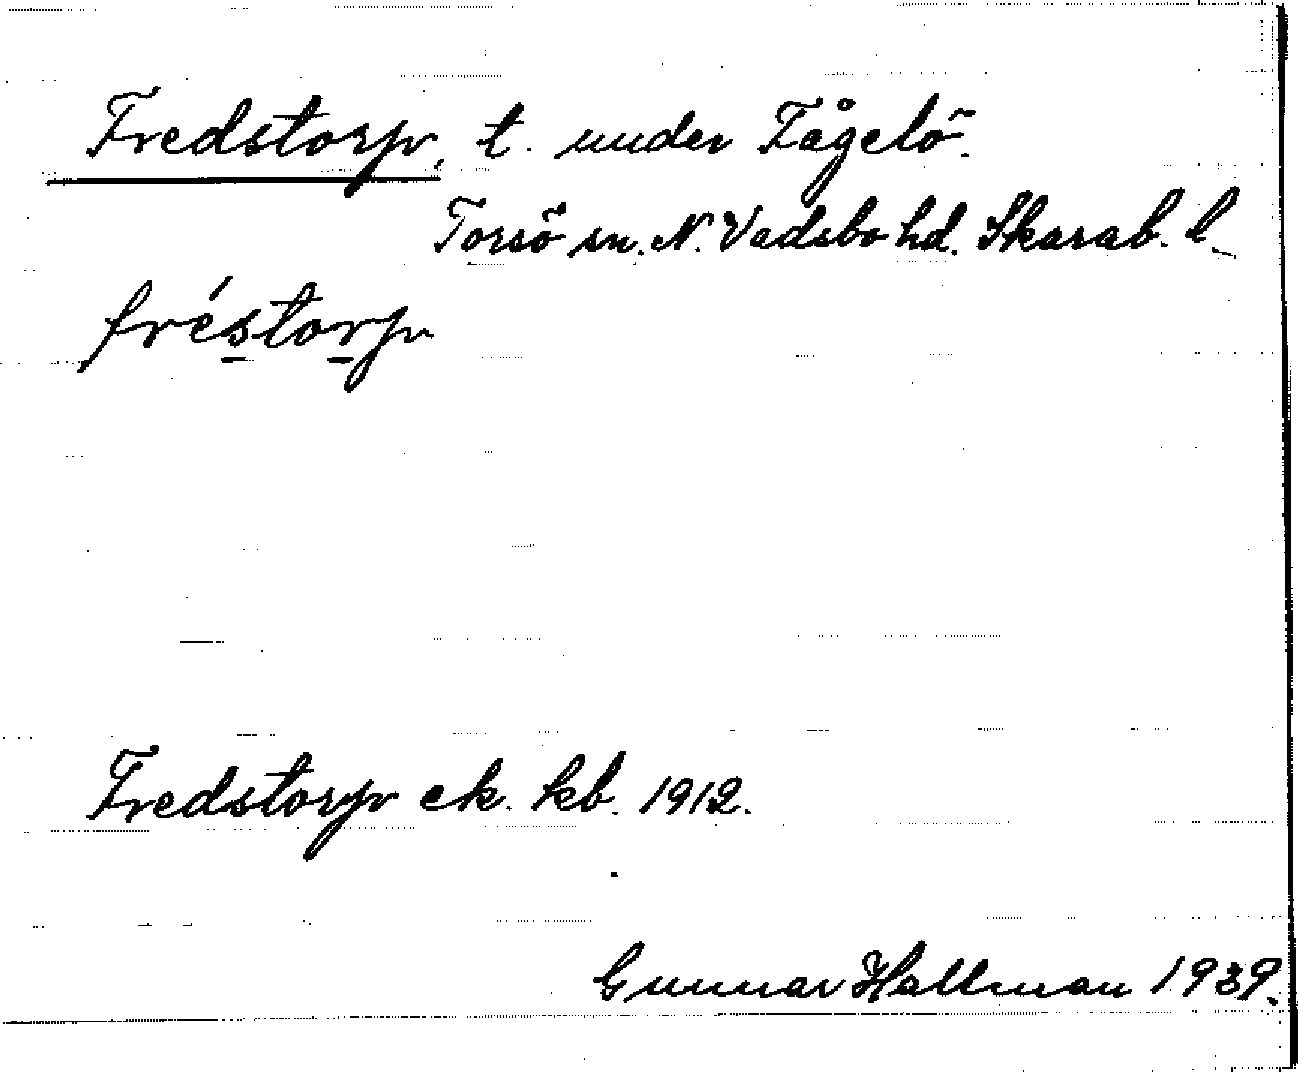 Fredstorp, t. under Fågelö.
Torsö sn. N. Vadsbo hd. Skarab. l.
fréstorp
Fredstorp ek. kb. 1912.
Gunnar Hallman 1939.